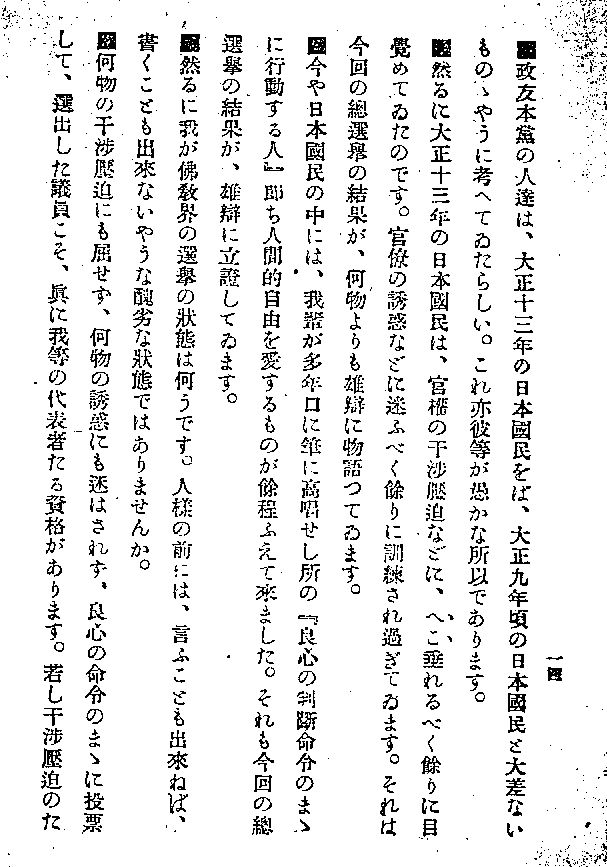 ■政友本黨の人達は、大正十三年の日本國民をば、大正九年頃の日本國民と大差ない
ものゝやうに考へてゐたらしい。これ亦彼等が愚かな所以であります。
■然るに大正十三年の日本國民は、官權の干涉壓迫などに、へこ垂れるべく餘りに目
覺めてゐたのです。官僚の誘惑などに迷ふべく餘りに訓練され過ぎてゐます。それは
今回の總選擧の結果が、何物よりも雄辯に物語つてゐます。
■今や日本國民の中には、我輩が多年口に筆に高唱せし所の『良心の判斷命令のまゝ
に行動する人』卽ち人間的自由を愛するものが餘程ふえて來ました。それも今回の總
選擧の結果が、雄辯に立證してゐます。
■然るに我が佛敎界の選擧の狀態は何うです。人樣の前には、言ふことも出來ねば、
書くことも出來ないやうな醜劣な狀態ではありませんか。
■何物の干涉壓迫にも屈せず、何物の誘惑にも迷はされず、良心の命令のまゝに投票
して、選出した議員こそ、眞に我等の代表者たる資格があります。若し干涉壓迫のた
一四